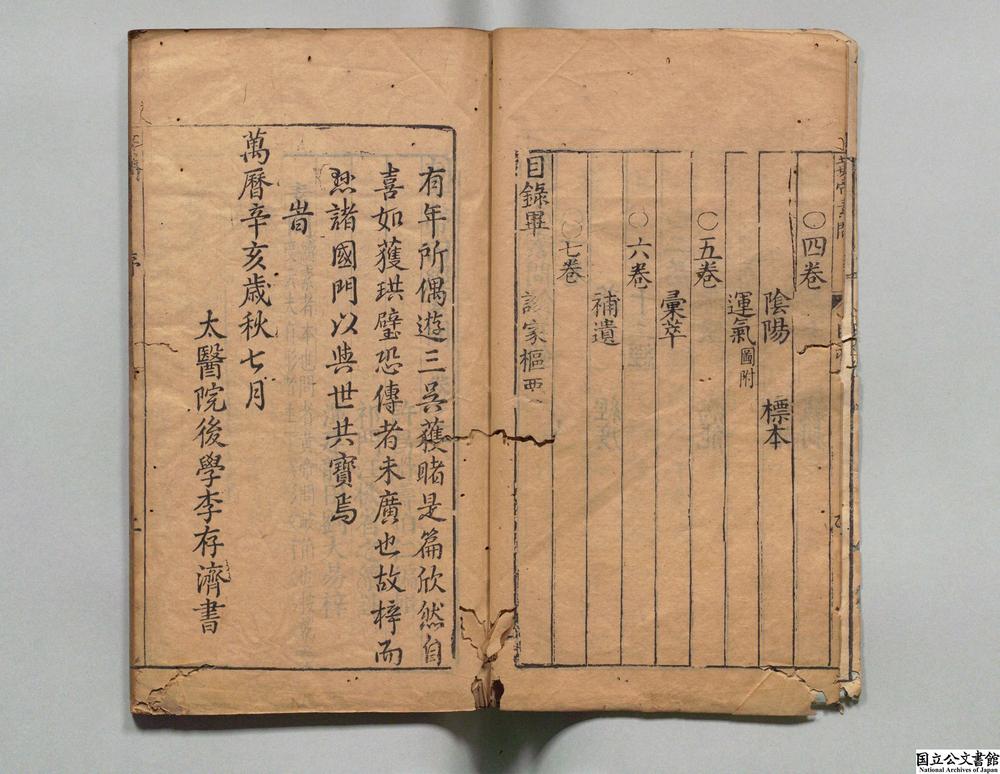 ○四卷
陰陽 標本
運氣圖附
○五卷
彙萃
○六卷
補遺
○七卷
目錄畢 診家樞要
有年所偶遊三吳獲睹是篇欣然自
喜如獲珙璧恐傳者未廣也故梓而
懸諸國門以與世共寶焉
旹
萬曆辛亥歲秋七月
太醫院後學李存濟書
国立公文書館
National Archives of Japan